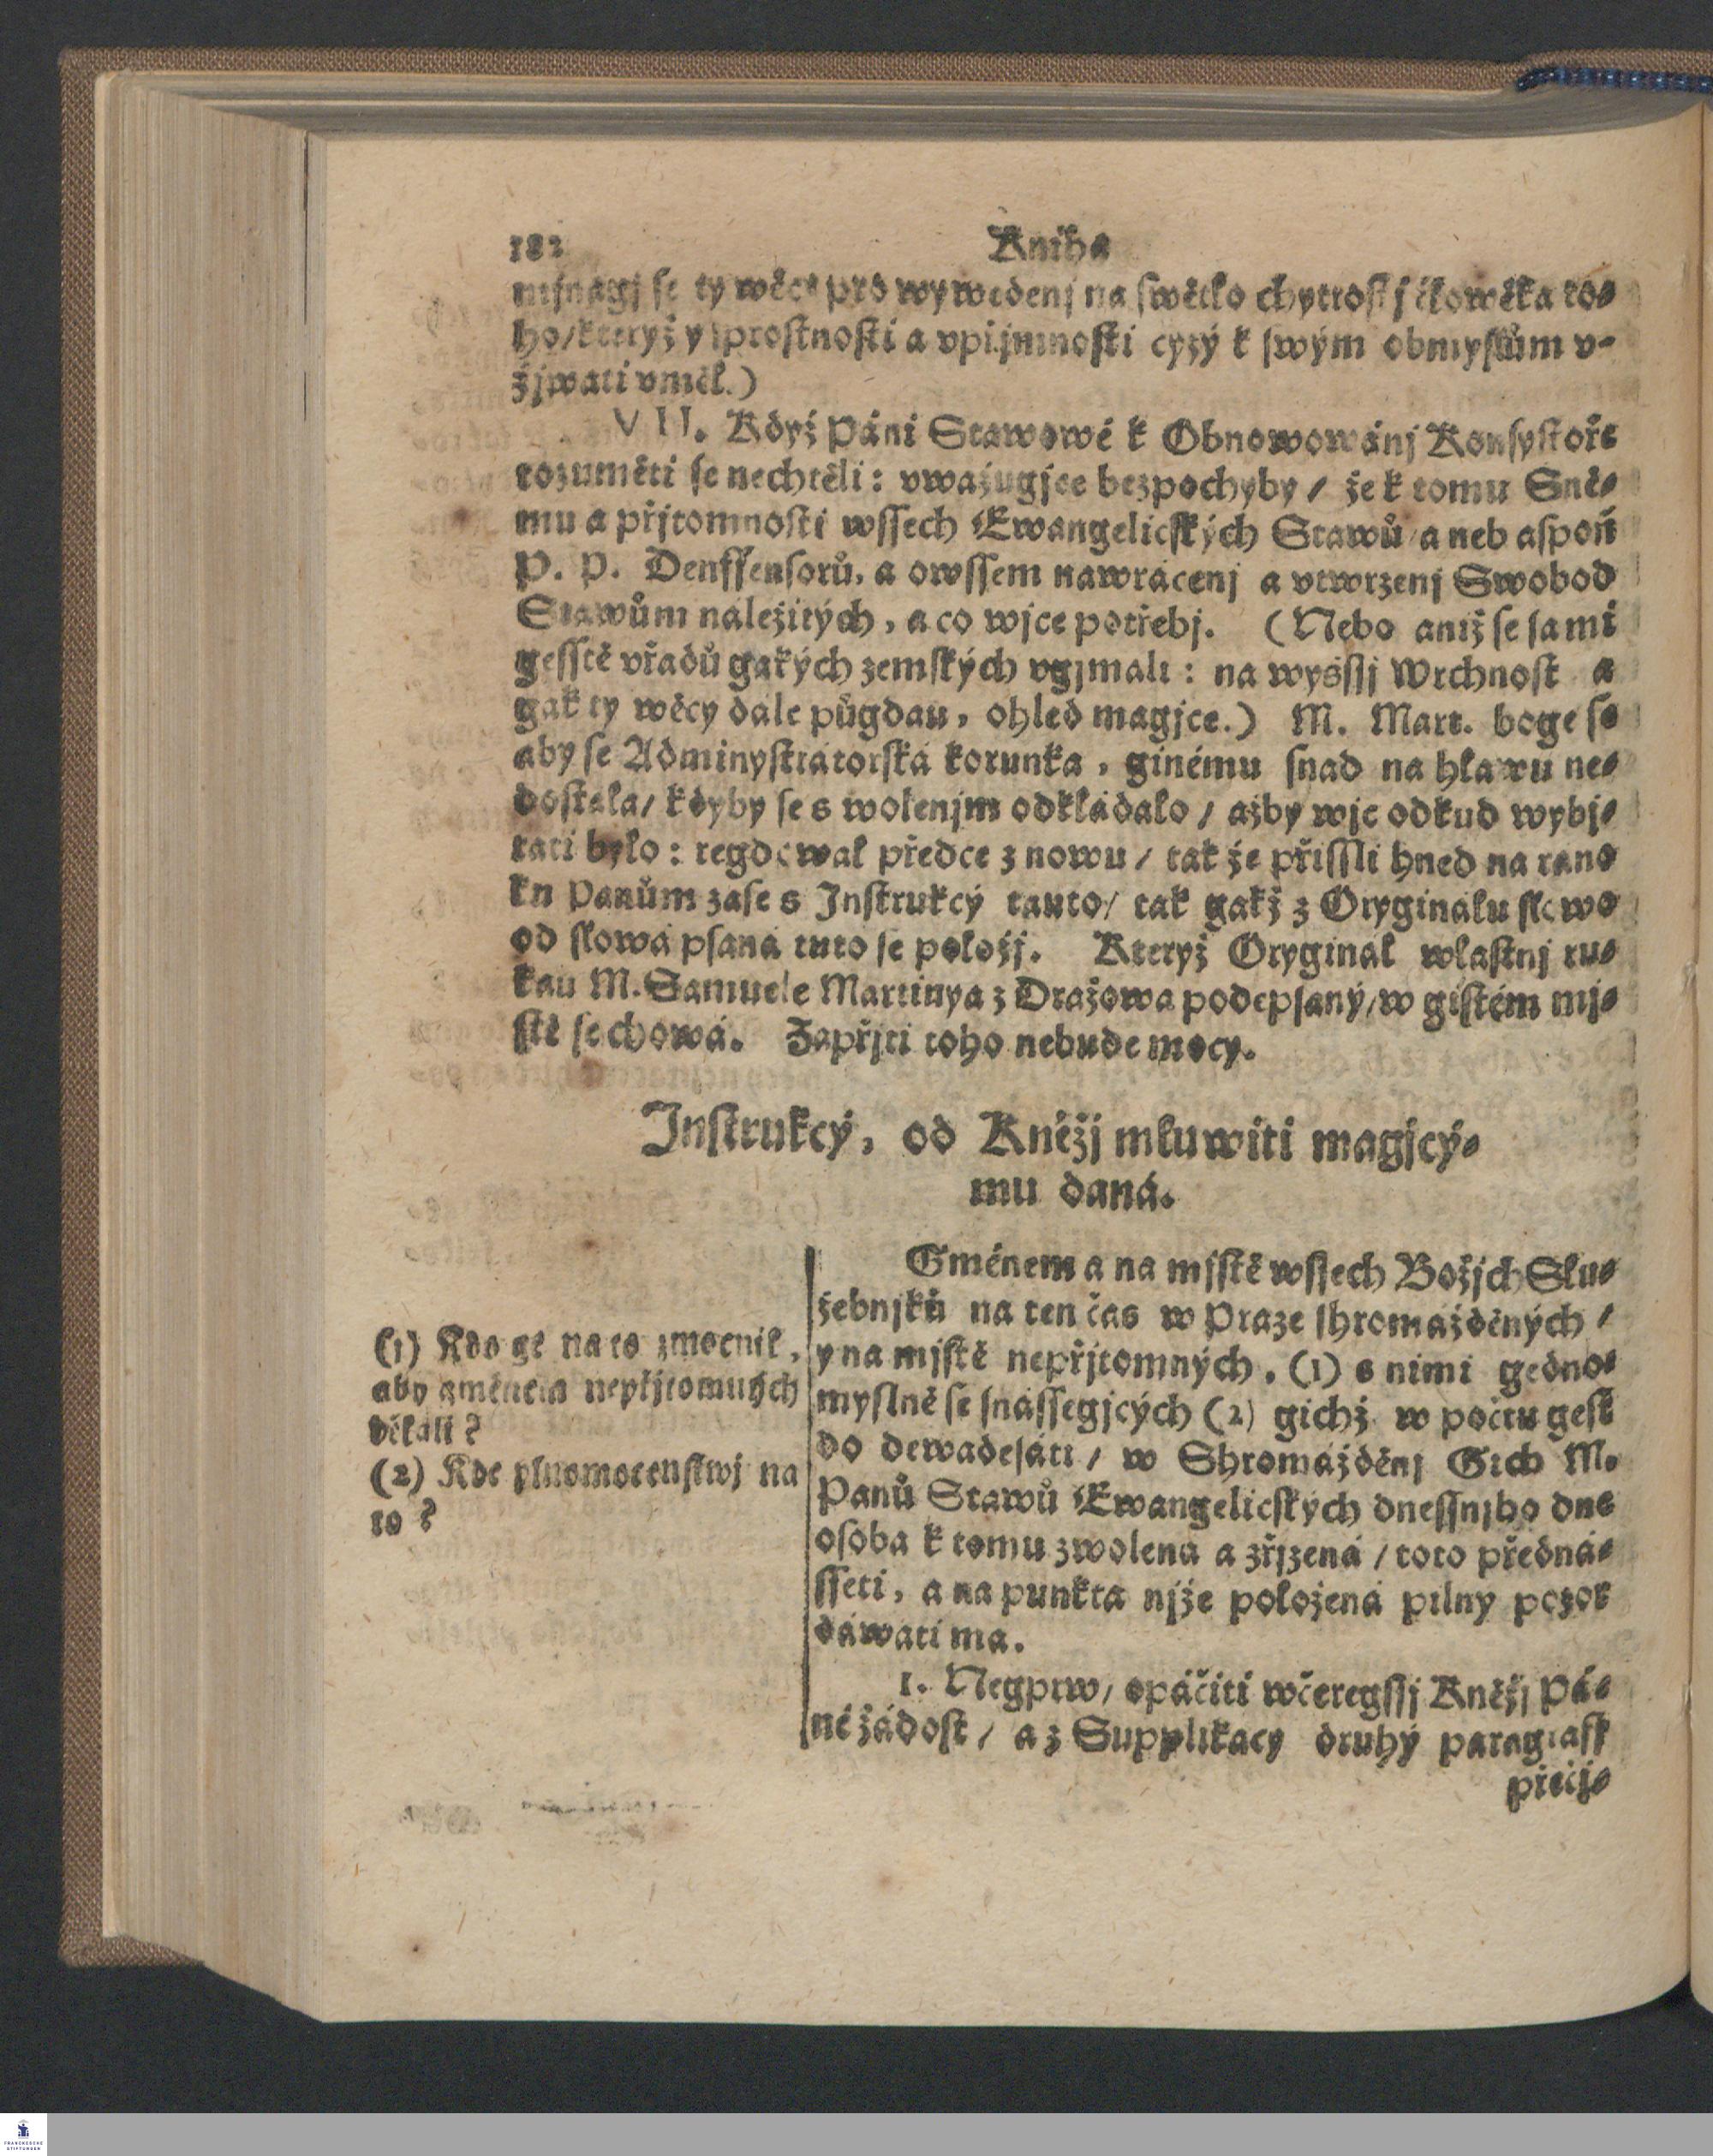 182 Kniha
mjnagj se ty wěcy pro wywedenj na swětlo chytrostj člowěka to-
ho/kteryž y sprostnosti a vpřjmnosti cyzý k swým obmyslům v-
žjwati vměl.)
VII. Když Páni Stawowé k Obnowowánj Konsystoře
rozuměti se nechtěli: vwažugjce bezpochyby / že k tomu Sně-
mu a přjtomnosti wssech Ewangelicských Stawů/a neb aspoň
P. P. Denffensorů, a owssem nawrácenj a vtwrzenj Swobod
Stawům náležitých, a co wjce potřebj. (Nebo aniž se sami
gesstě vřadů gakých zemských vgjmali: na wyšssj Wrchnost a
gak ty wěcy dále půgdau, ohled magjce.) M. Mart. boge se
aby se Adminystratorská korunka, ginému snad na hlawu ne-
dostala/ kdyby se s wolenjm odkládalo / ažby wjc odkud wybj-
rati bylo: regdowal předce z nowu / tak že přissli hned na rano
kn Panům zase s Instrukcý tauto/ tak gakž z Oryginálu slowo
od slowa psaná tuto se položj. Kteryž Oryginal wlastnj ru-
kau M. Samuele Martinya z Dražowa podepsaný/w gistém mj-
stě se chowá. Zapřjti toho nebude mocy.
Instrukcý, od Kněžj mluwiti magjcý-
mu daná.
Gménem a na mjstě wssech Božjch Slu-
žebnjků na ten čas w Praze shromážděných /
y na mjstě nepřjtomných, (1) s nimi gedno-
myslně se snássegjcých (2) gichž w počtu gest
do dewadesáti / w Shromážděnj Gich M.
Panů Stawů Ewangelicských dnessnjho dne
osoba k tomu zwolená a zřjzená / toto předná-
sseti, a na punkta njže položená pilny pozor
dáwati má.
1. Negprw/ opáčiti wčeregssj Kněžj Pá-
né žádost / a z Supplikacy druhý paragraff
přečj-
(1) Kdo gé na to zmocnil,
aby gménem nepřjtomných
děkali?
(2) Kde plnomocenstwj na
to?
FRANCKESCHE
STIFTUNGEN